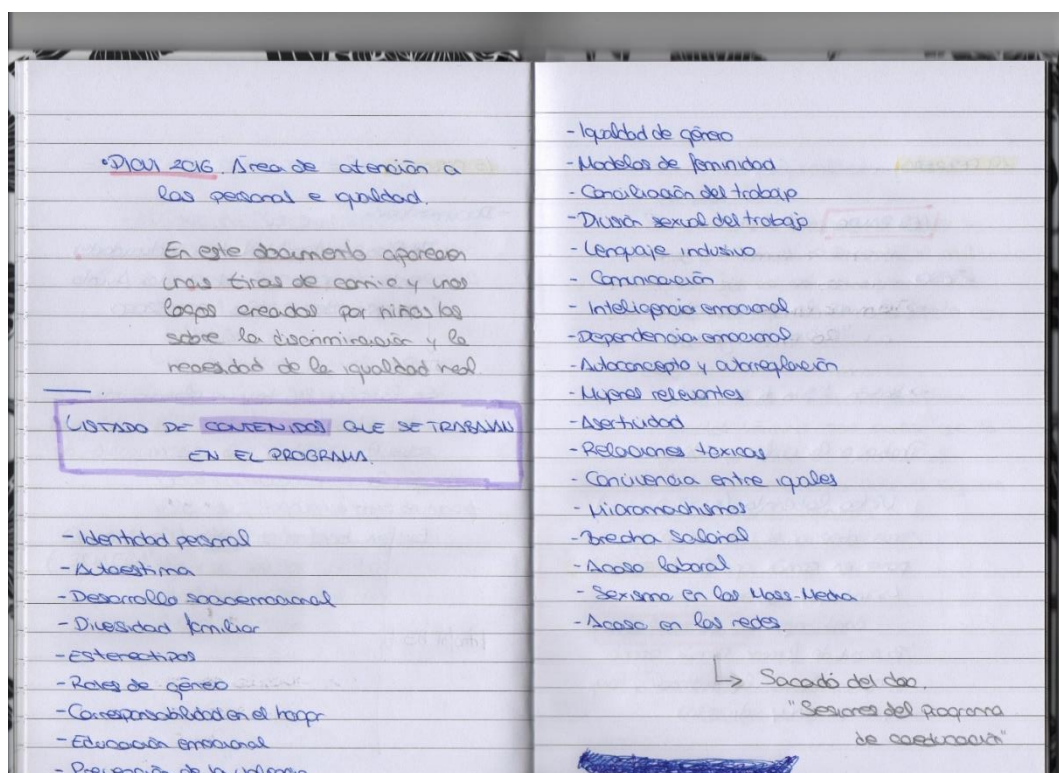 ·DIOUI 2016. Área de atención a
las personas e igualdad.
En este documento aparecen
unas tiras de comic y unos
logos creados por niños/as
sobre la discriminación y la
necesidad de la igualdad real.
LISTADO DE CONTENIDOS QUE SE TRABAJAN
EN EL PROGRAMA.
- Identidad personal
- Autoestima
- Desarrollo socioemocional
- Diversidad familiar
- Estereotipos
- Roles de género
- Corresponsabilidad en el hogar
- Educación emocional
- Prevención de la violencia
- Igualdad de género
- Modelos de feminidad
- Conciliación del trabajo
- División sexual del trabajo
- Lenguaje inclusivo
- Comunicación
- Inteligencia emocional
- Dependencia emocional
- Autoconcepto y autorregulación
- Mujeres relevantes
- Asertividad
- Relaciones tóxicas
- Convivencia entre iguales
- Micromachismos
- Brecha salarial
- Acoso laboral
- Sexismo en los Mass-Media
- Acoso en las redes.
↳ Sacado del doc.
"Sesiones del Programa
de coeducación"